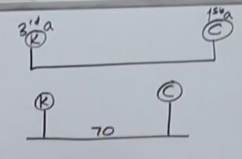 3rd a 1st a
K C
K C
70